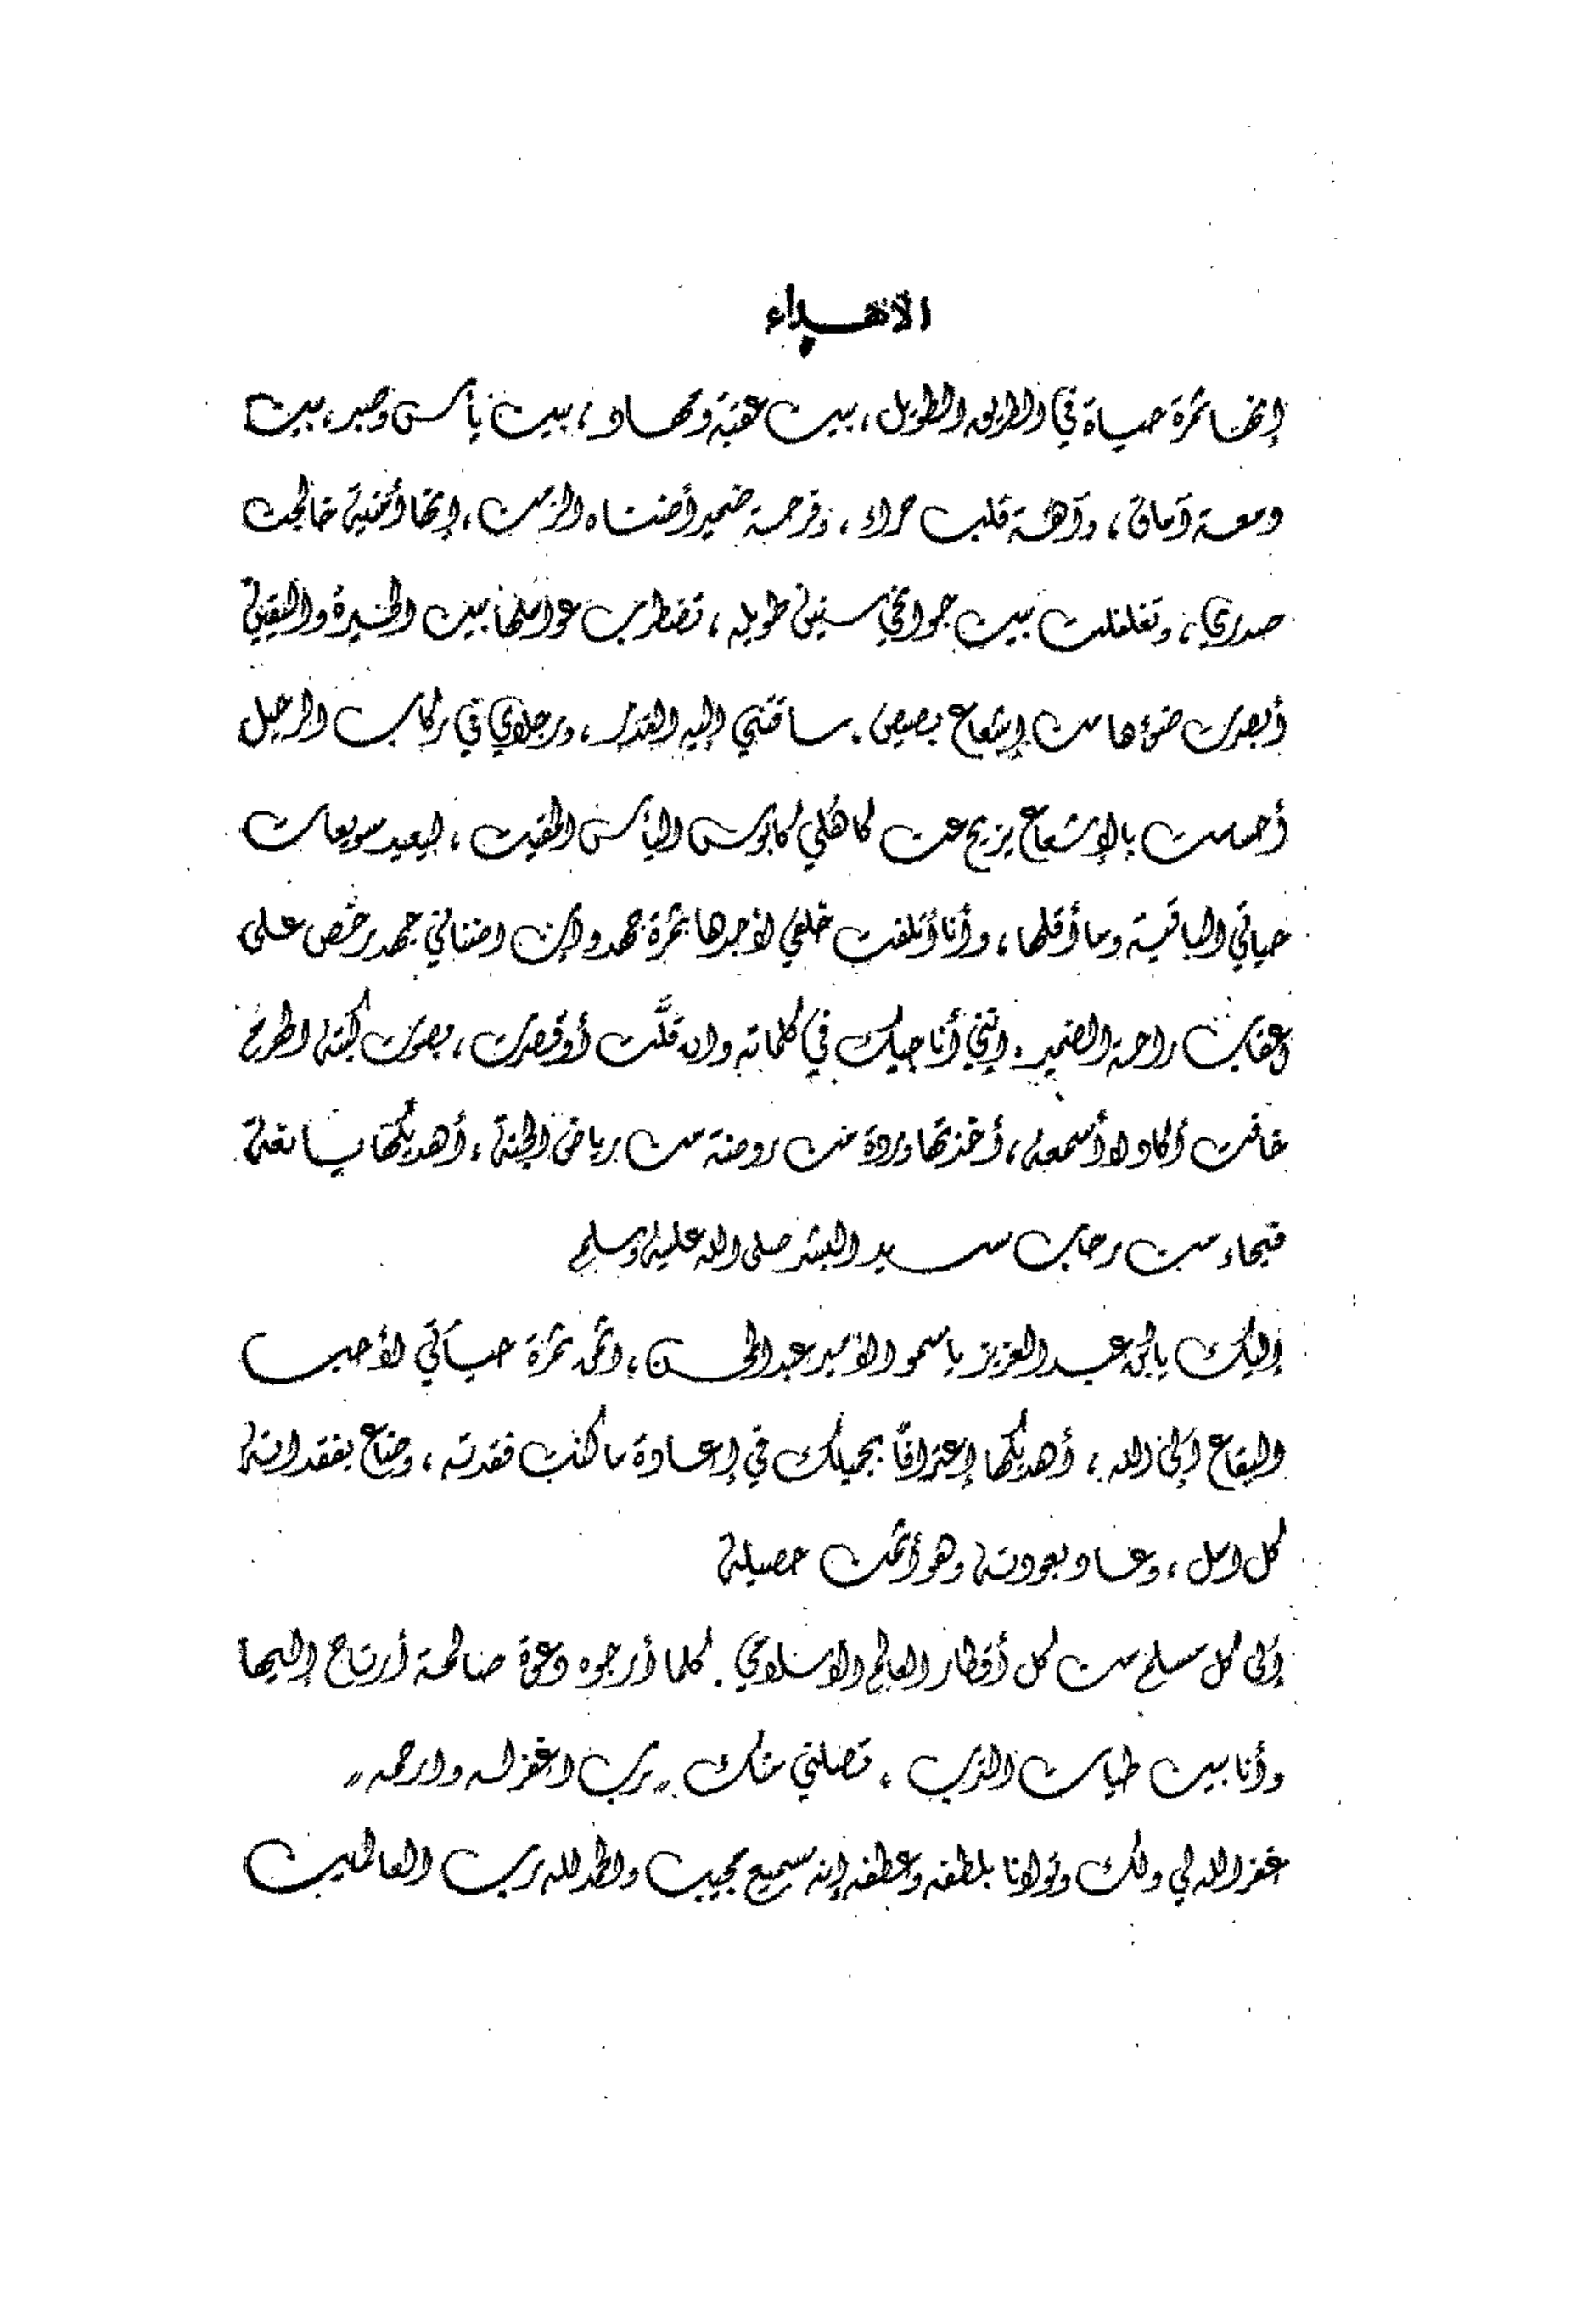 الاهداء
إنها ثمرة حياة في الطريق الطويل، بين عقبة وكهاد، بين يأس وصبر، بين
دمعة آماق، وآهة قلب حراء، وفرحة ضمير أضناه الزمن، إنها أمنية خالجت
صدري، وتغلغلت بين جوانحي سنين طويلة، تضطرب عواملها بين الحيرة واليقين
أبصرت ضوءها من إشعاع بصيص. ساقتني إليه القدر، ورجلاي في ركاب الرحيل
أحسست بالإشعاع يزيح عن كاهلي كابوس اليأس المقيت، ليعيد سويعات
حياتي الباقية وما أقلها، وأنا أتلفت خلفي لأجدها ثمرة جهد وإن اضناني جهد رخص على
أعقاب راحة الضمير. انني أناجيك في كلماته وان قلَّت أو قصرت، بصوت كبته الهرم
خافت أكاد لا أسمعه، أخذتها وردة من روضة من رياض الجنة، أهديكها يانعة
فيحاء من رحاب سيد البشر صلى الله عليه وسلم
إليك يا بن عبد العزيز يا سمو الأمير عبد المحسن، اثمن ثمرة حياتي لأحب
البقاع إلى الله، أهديكها إعترافاً بجميلك في إعادة ما كنت فقدته، وضاع بفقدانه
كل امل، وعاد بعودته وهو أثمن حصيلة
إلى كل مسلم من كل أقطار العالم الاسلامي. كلما أرجوه دعوة صالحة أرتاح إليها
وأنا بين طيات الترب. تصلني منك "رب اغفر له وارحمه"
غفر الله لي ولك وتولانا بلطفه وعطفه إنه سميع مجيب والحمد لله رب العالمين